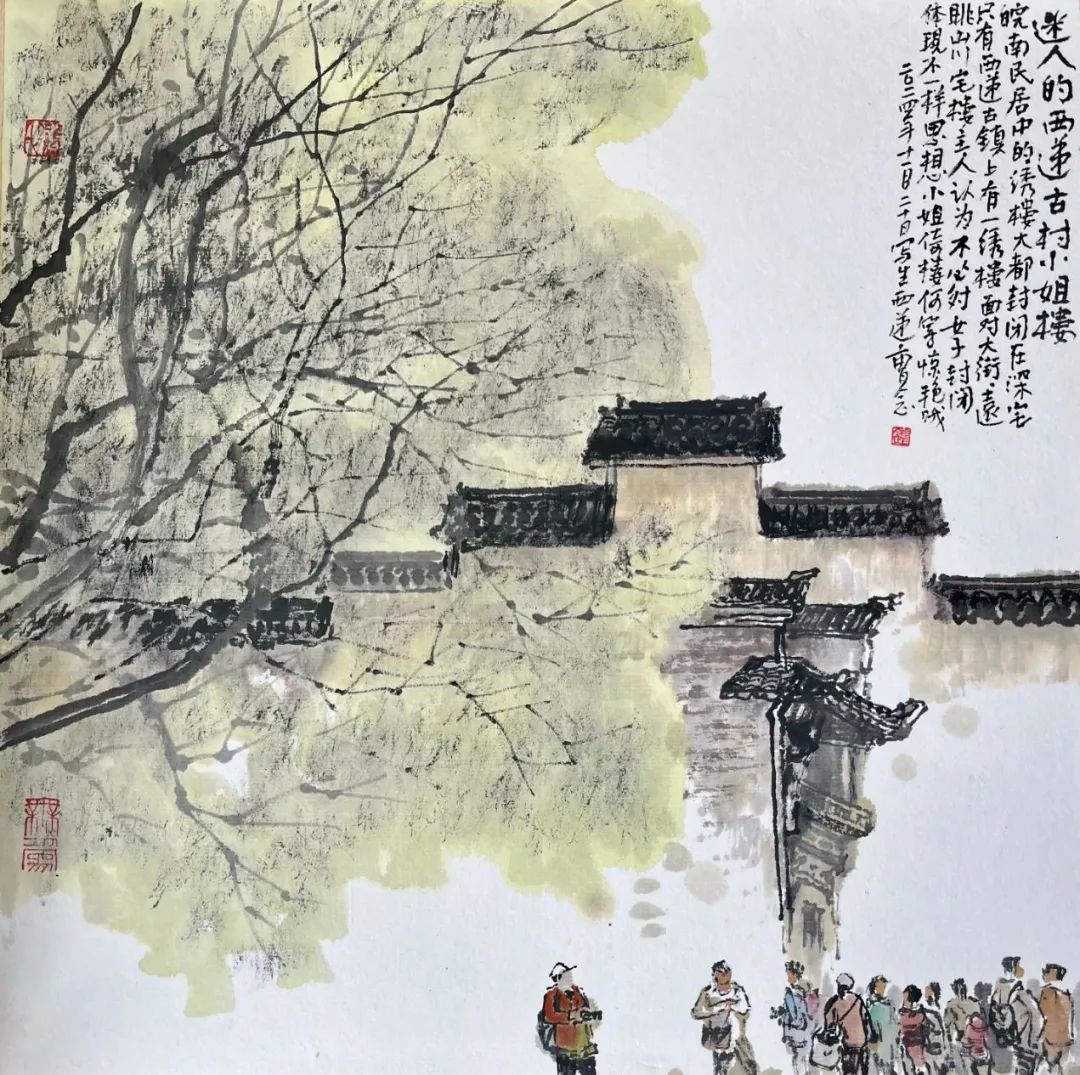 迷人的西递古村小姐樓
皖南民居中的绣樓大都封闭在深宅
只有西递古鎮上有一绣樓面对大街遠
眺山川宅樓主人认为不必对女子封闭
体現不一样思想小姐倚樓何等惊艳哉
二〇二四年十一月二十日写生西递